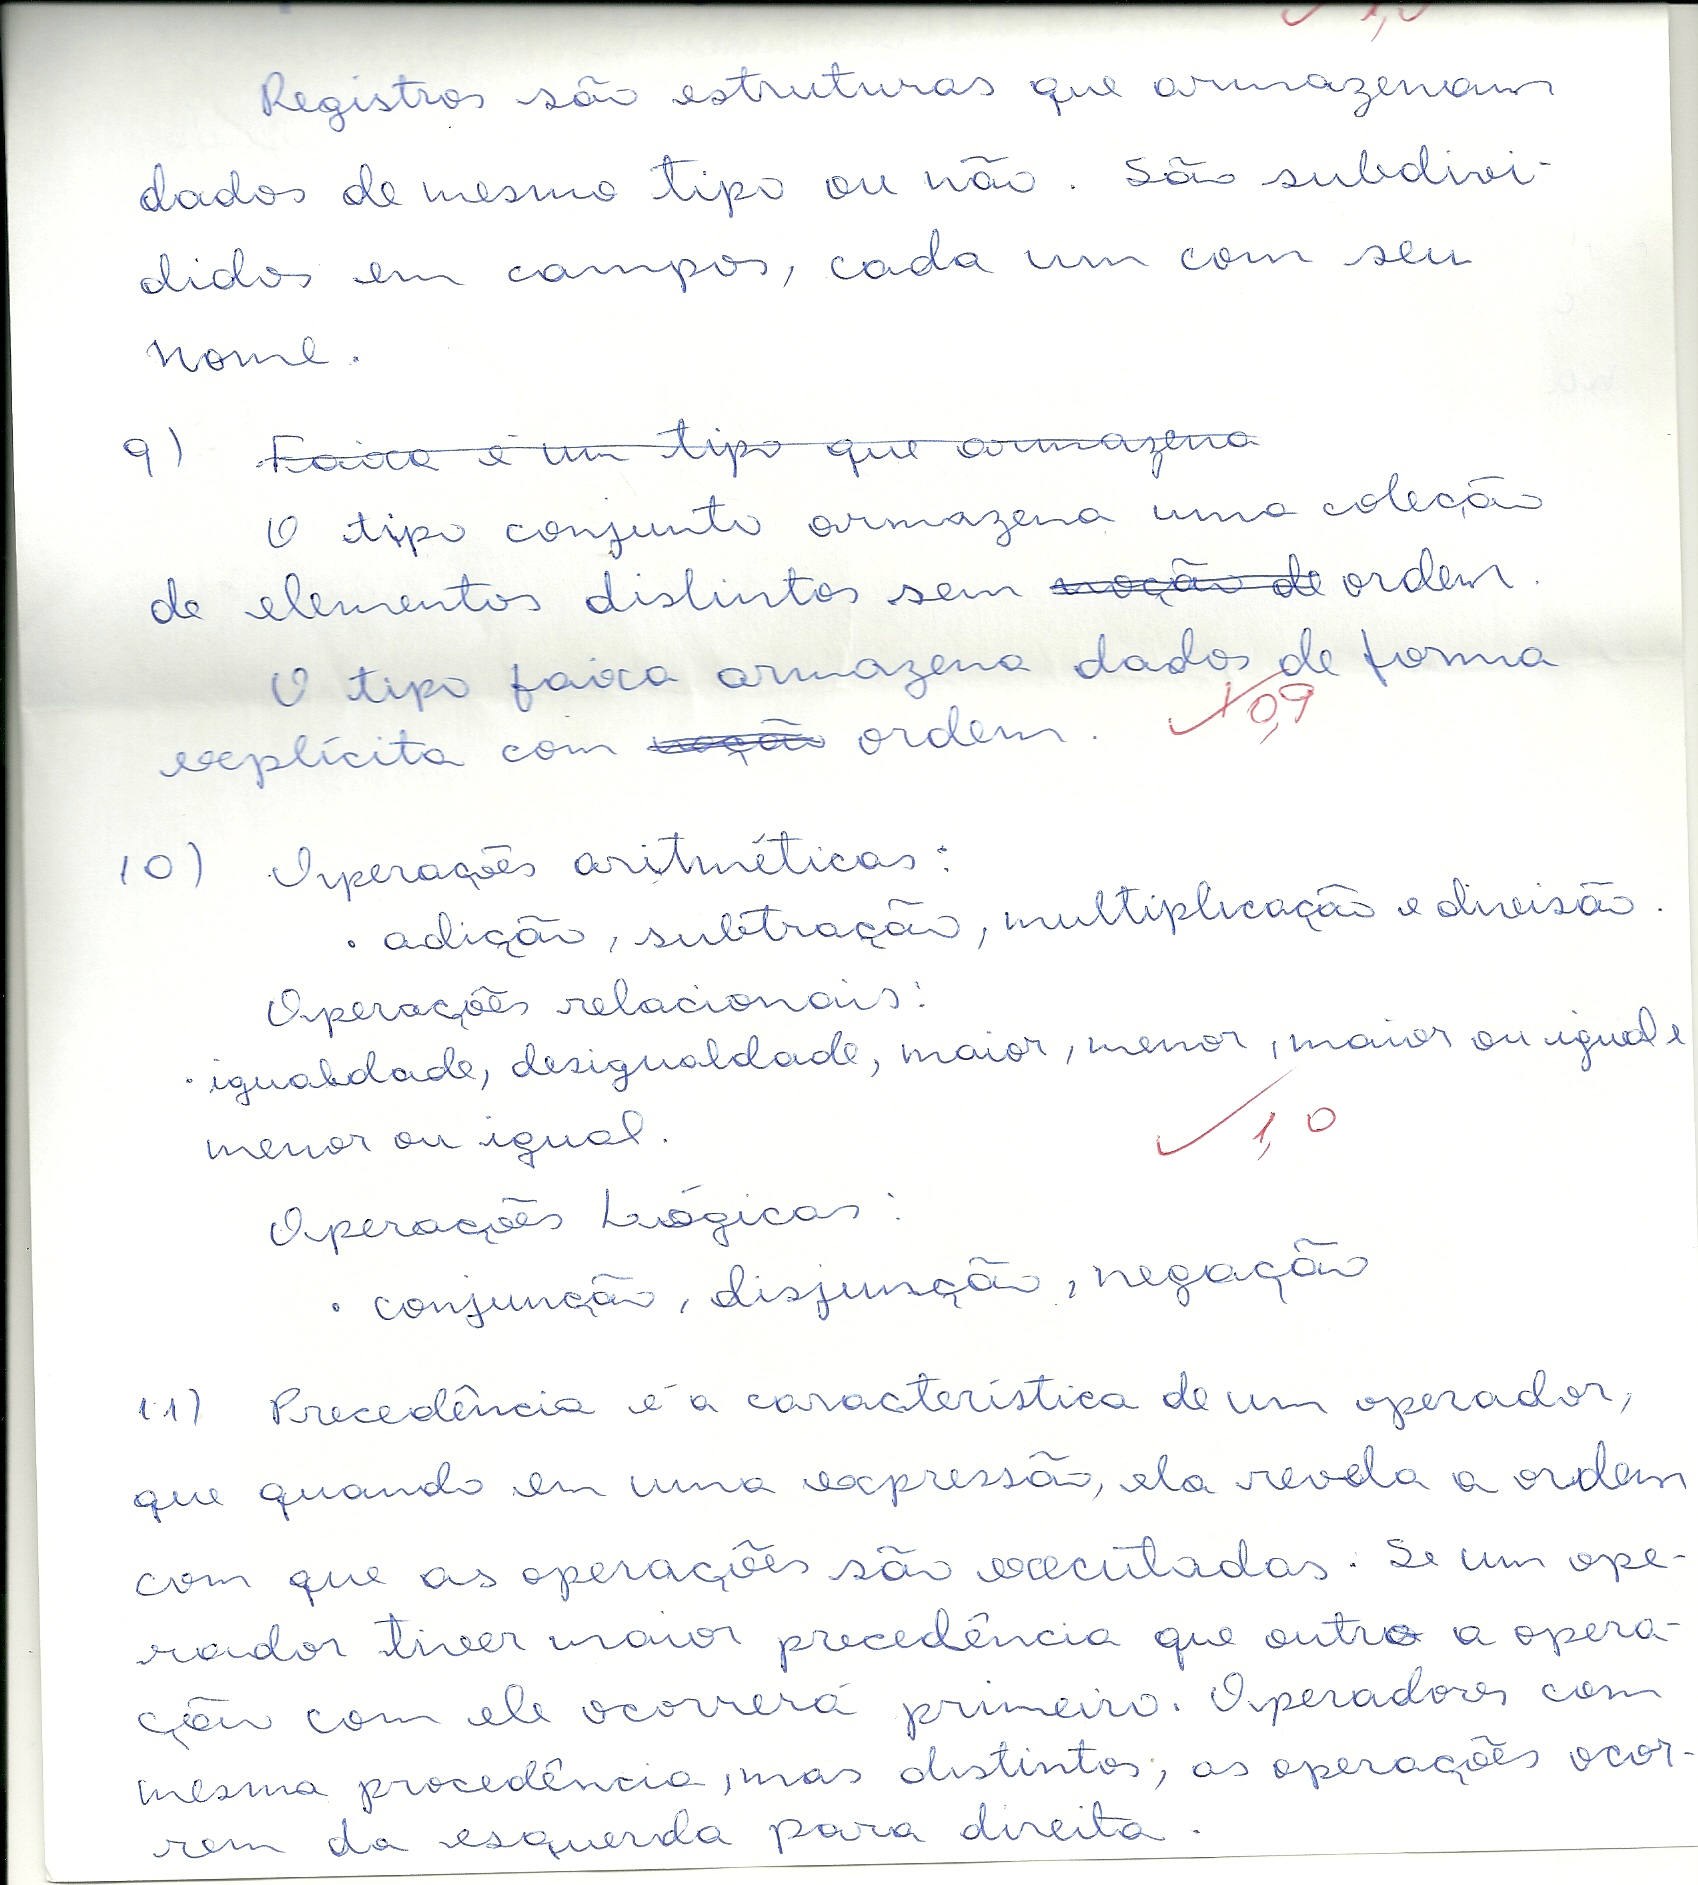 ✓ 1,0
Registros são estruturas que armazenam
dados de mesmo tipo ou não. São subdivi-
didos em campos, cada um com seu
nome.
9) Faixa é um tipo que armazena
O tipo conjunto armazena uma coleção
de elementos distintos sem noção de ordem.
O tipo faixa armazena dados de forma
explícita com noção ordem. ✓ 0,9
10) Operações aritméticas:
• adição, subtração, multiplicação e divisão.
Operações relacionais:
• igualdade, desigualdade, maior, menor, maior ou igual e
menor ou igual.
✓ 1,0
Operações Lógicas:
• conjunção, disjunção, negação
11) Precedência é a característica de um operador,
que quando em uma expressão, ela revela a ordem
com que as operações são executadas. Se um ope-
rador tiver maior precedência que outro a opera-
ção com ele ocorrerá primeiro. Operadores com
mesma procedência, mas distintos, as operações ocor-
rem da esquerda para direita.